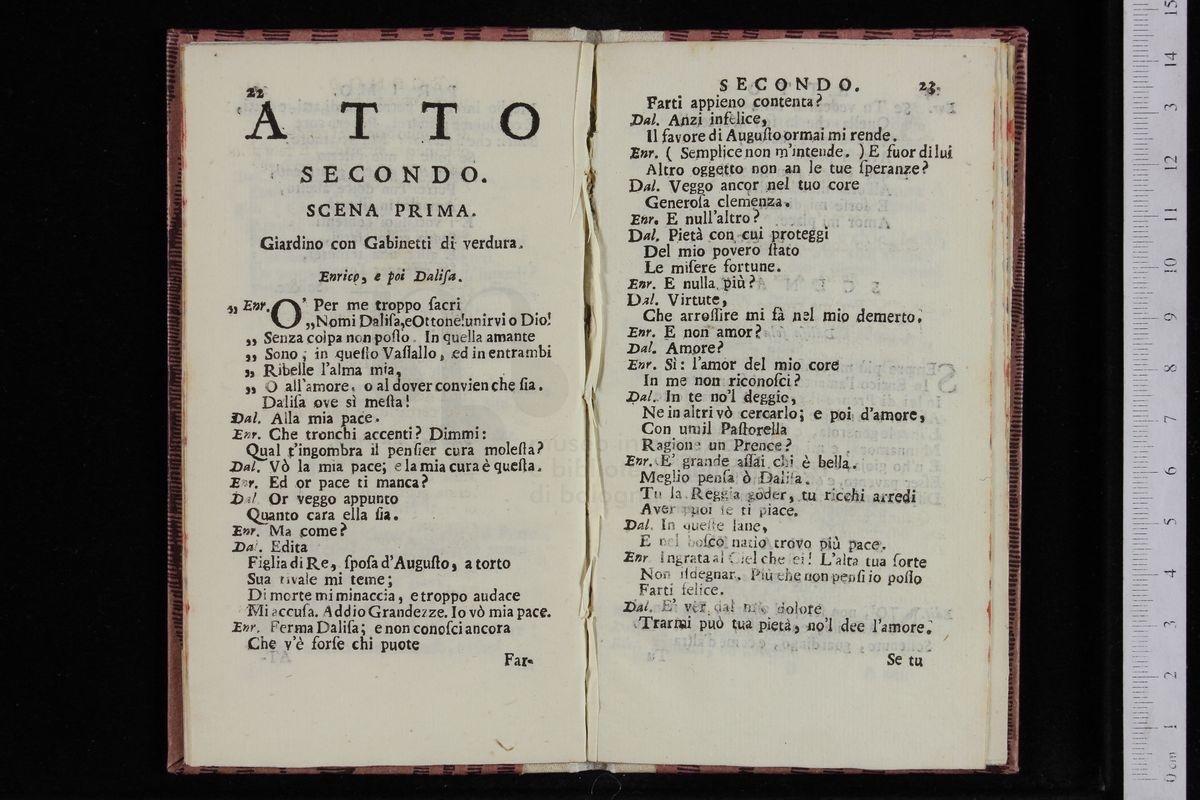 22
ATTO
SECONDO.
SCENA PRIMA.
Giardino con Gabinetti di verdura.
Enrico, e poi Daliſa.
„ Enr. O' Per me troppo ſacri
„Nomi Daliſa,eOttone!unirvi o Dio!
„ Senza colpa non poſſo. In quella amante
„ Sono, in queſto Vaſſallo, ed in entrambi
„ Ribelle l'alma mia,
„ O all'amore, o al dover convien che ſia.
Daliſa ove sì meſta!
Dal. Alla mia pace.
Enr. Che tronchi accenti? Dimmi:
Qual t'ingombra il penſier cura moleſta?
Dal. Vò la mia pace; e la mia cura è queſta.
Enr. Ed or pace ti manca?
Dal. Or veggo appunto
Quanto cara ella ſia.
Enr. Ma come?
Dal. Edita
Figlia di Re, ſpoſa d'Auguſto, a torto
Sua rivale mi teme;
Di morte mi minaccia, e troppo audace
Mi accuſa. Addio Grandezze. Io vò mia pace.
Enr. Ferma Daliſa; e non conoſci ancora
Che v'è forſe chi puote
Far-
SECONDO. 23.
Farti appieno contenta?
Dal. Anzi infelice,
Il favore di Auguſto ormai mi rende.
Enr. ( Semplice non m'intende. ) E fuor di lui
Altro oggetto non an le tue ſperanze?
Dal. Veggo ancor nel tuo core
Generoſa clemenza.
Enr. E null'altro?
Dal. Pietà con cui proteggi
Del mio povero ſtato
Le miſere fortune.
Enr. E nulla più?
Dal. Virtute,
Che arroſſire mi fà nel mio demerto.
Enr. E non amor?
Dal. Amore?
Enr. Sì: l'amor del mio core
In me non riconoſci?
Dal. In te no'l deggio,
Ne in altri vò cercarlo; e poi d'amore,
Con umil Paſtorella
Ragione un Prence?
Enr. E' grande aſſai chi è bella.
Meglio penſa ò Daliſa.
Tu la Reggia goder, tu ricchi arredi
Aver puoi ſe ti piace.
Dal. In queſte lane,
E nel boſco natio trovo più pace.
Enr Ingrata al Ciel che ſei! L'alta tua ſorte
Non iſdegnar. Più che non penſi io poſſo
Farti felice.
Dal. E' ver dal mio dolore
Trarmi può tua pietà, no'l dee l'amore.
Se tu